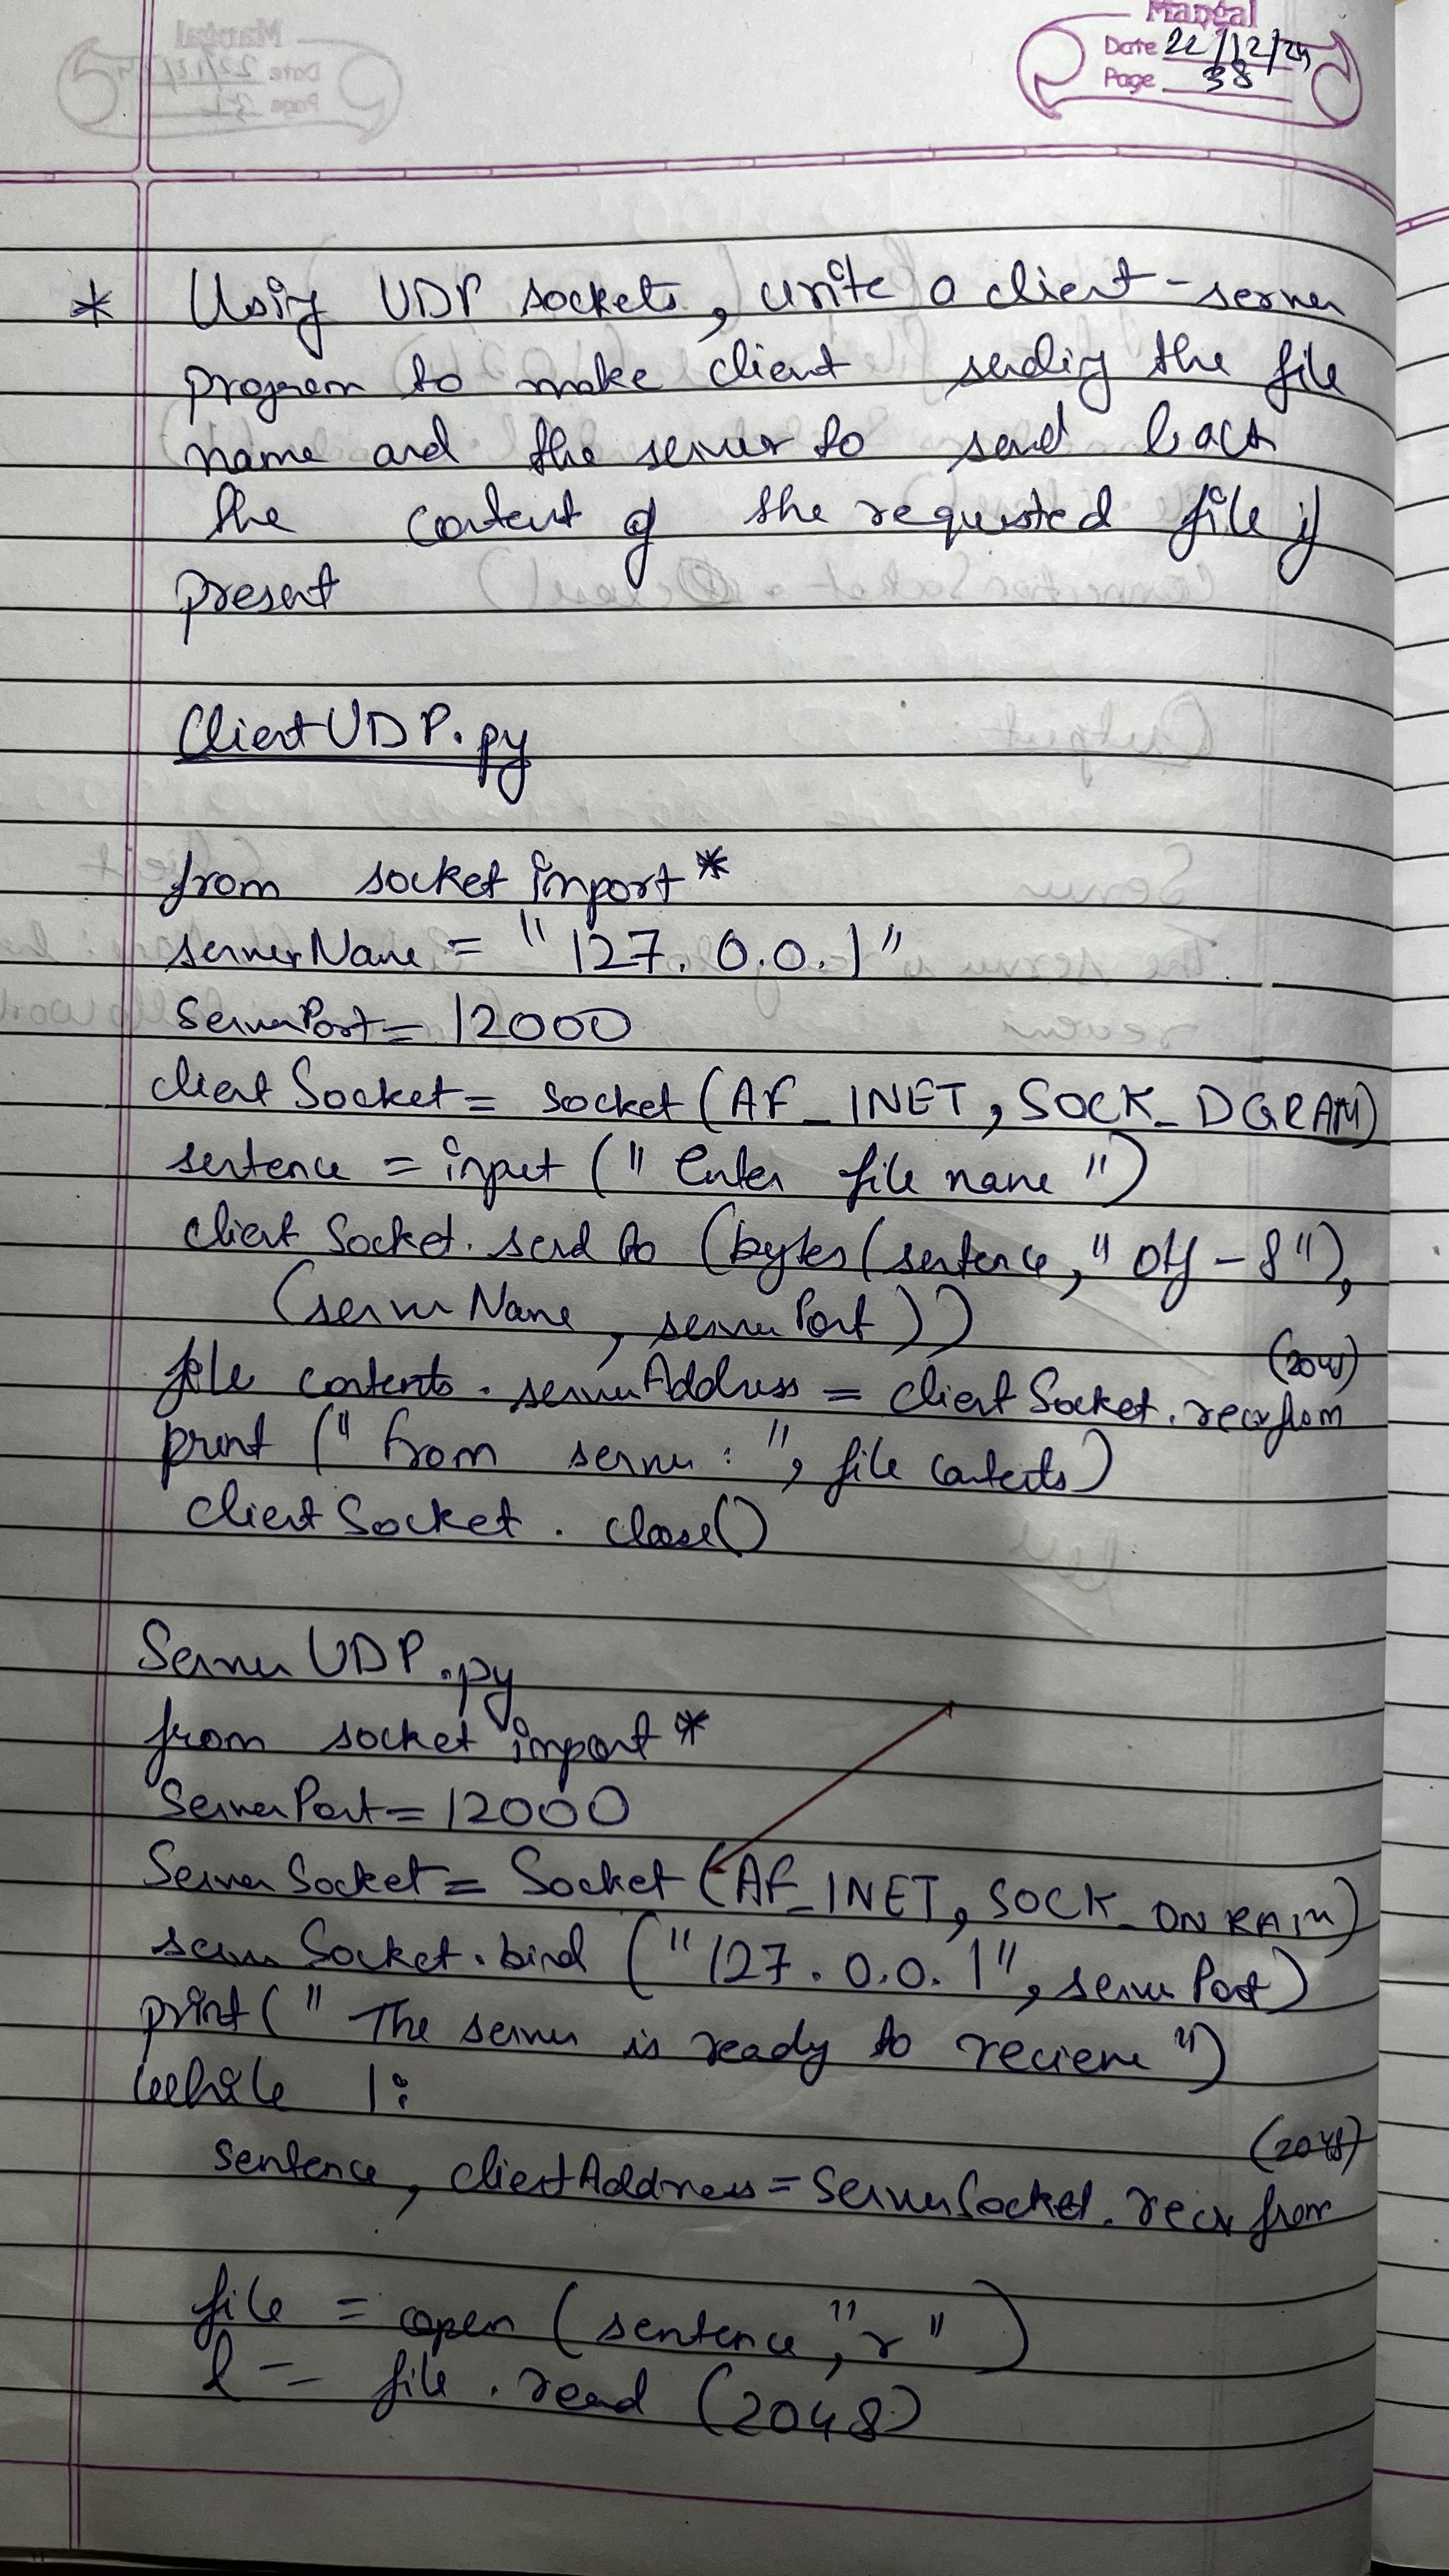 Mangal
Date 22/12/24
Page 38
* Using UDP sockets, write a client-server
program to make client sending the file
name and the server to send back
the content of the requested file if
present
ClientUDP.py
from socket import *
serverName = "127.0.0.1"
ServerPort = 12000
clientSocket = socket(AF_INET, SOCK_DGRAM)
sentence = input("Enter file name")
clientSocket.sendto(bytes(sentence,"utf-8"),
(serverName, serverPort))
(2048)
file contents. serverAddress = clientSocket.recvfrom
print("From server:", file contents)
clientSocket.close()
ServerUDP.py
from socket import *
ServerPort = 12000
ServerSocket = Socket(AF_INET, SOCK_DNRAM)
serverSocket.bind("127.0.0.1", serverPort)
print("The server is ready to recieve")
while 1:
(2048)
sentence, clientAddress = ServerSocket.recvfrom
file = open(sentence,"r")
l = file.read(2048)